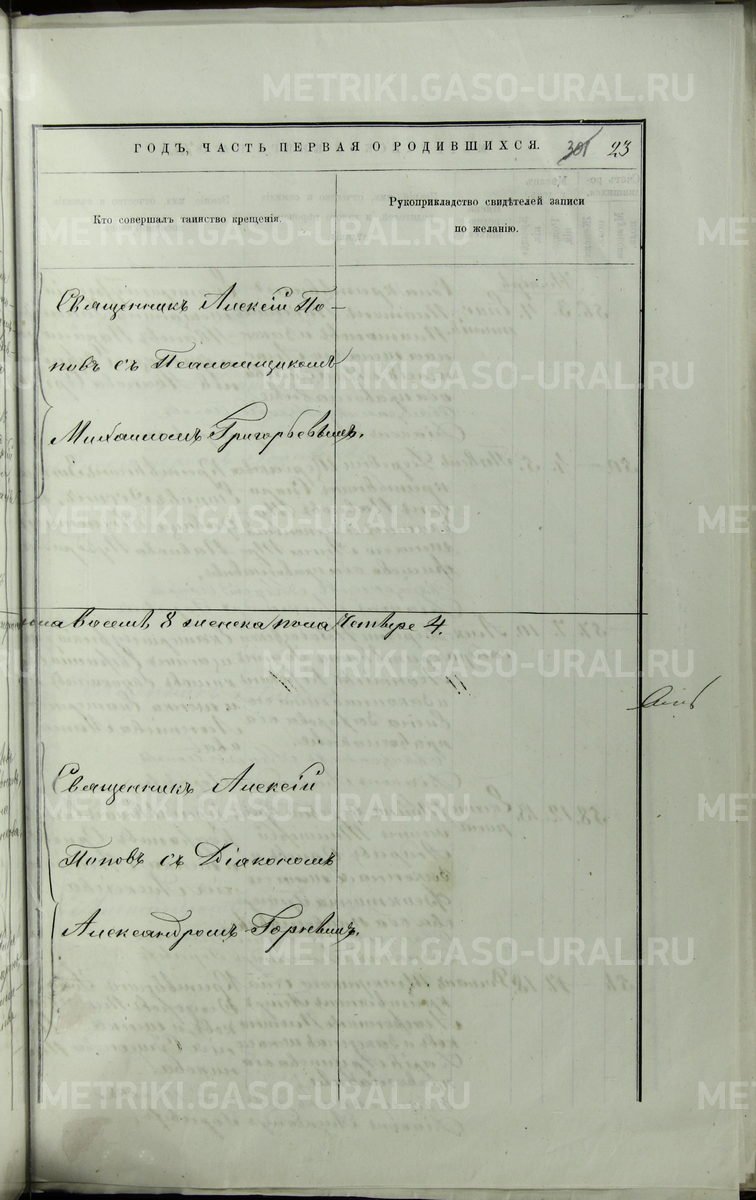 METRIKI.GASO-URAL.RU
ГОДЪ, ЧАСТЬ ПЕРВАЯ О РОДИВШИХСЯ. 301 23
Кто совершалъ таинство крещенія.
Рукоприкладство свидѣтелей записи
по желанію.
Священникъ Алексій По-
повъ съ Псаломщикомъ
Михаиломъ Григорьевымъ.
пола восемь 8 женска пола Четыре 4.
Священникъ Алексій
Поповъ съ Діакономъ
Александромъ